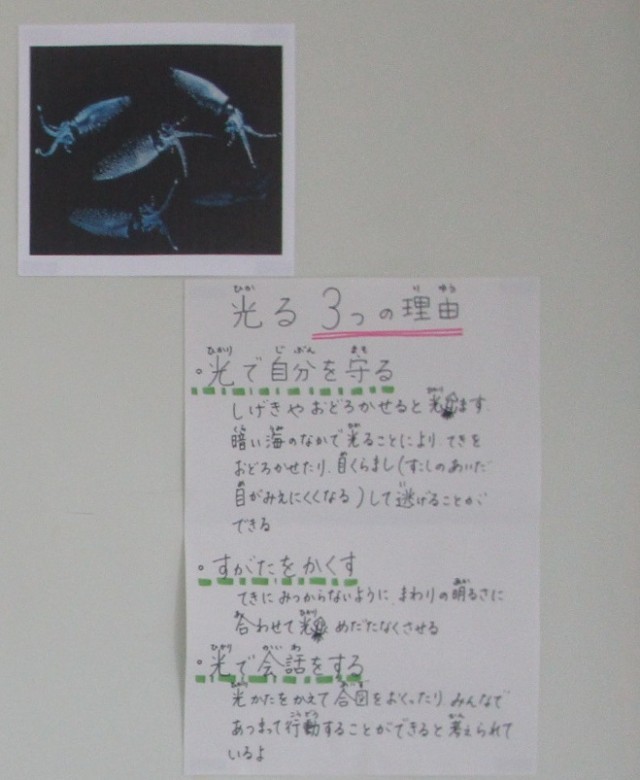 光る 3つの理由
・光で自分を守る
しげきや おどろかせると 光ります.
暗い海のなかで 光ることにより、てきを
おどろかせたり、目くらまし(すこしのあいだ
目がみえにくくなる)して逃げることが
できる
・すがたをかくす
てきに みつからないように、まわりの明るさに
合わせて光り めだたなくさせる
・光で会話をする
光かたをかえて 合図をおくったり みんなで
あつまって行動することができると 考えられて
いるよ